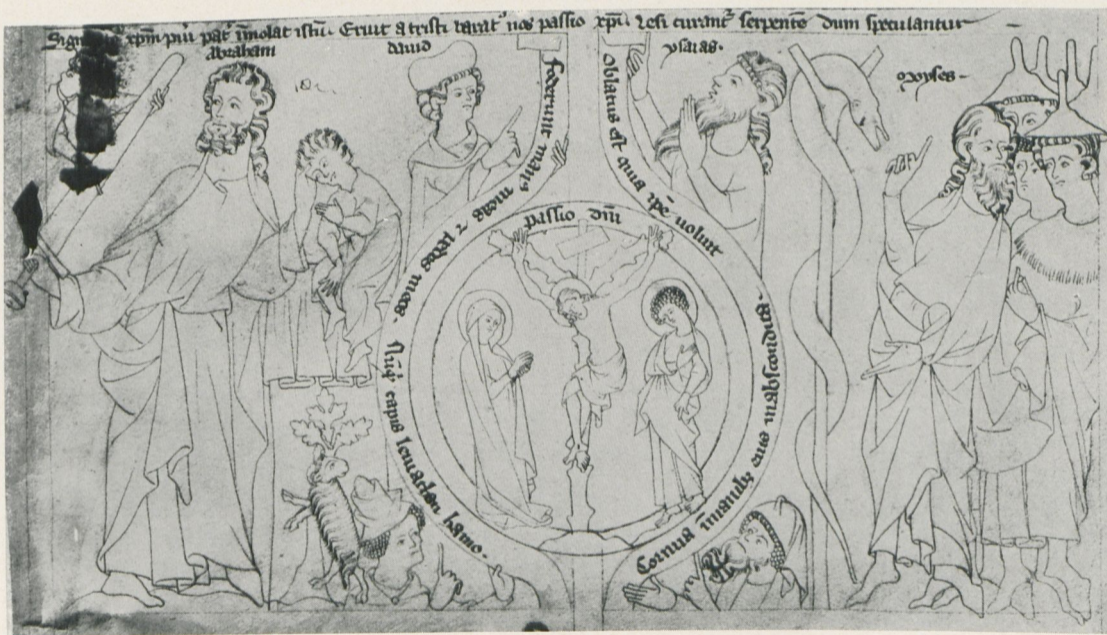 xpm puu pat' imolat istu Eruit a tristi barat' nos passio xpi Lesi curant' serpente dum speculantur
abraham
david
ysaias.
moyses
Foderunt manus meas ⁊ pedes meos.
Oblatus est quia ipe uoluit
passio dni
capis leuiathan hamo.
Cornua i manib; eius